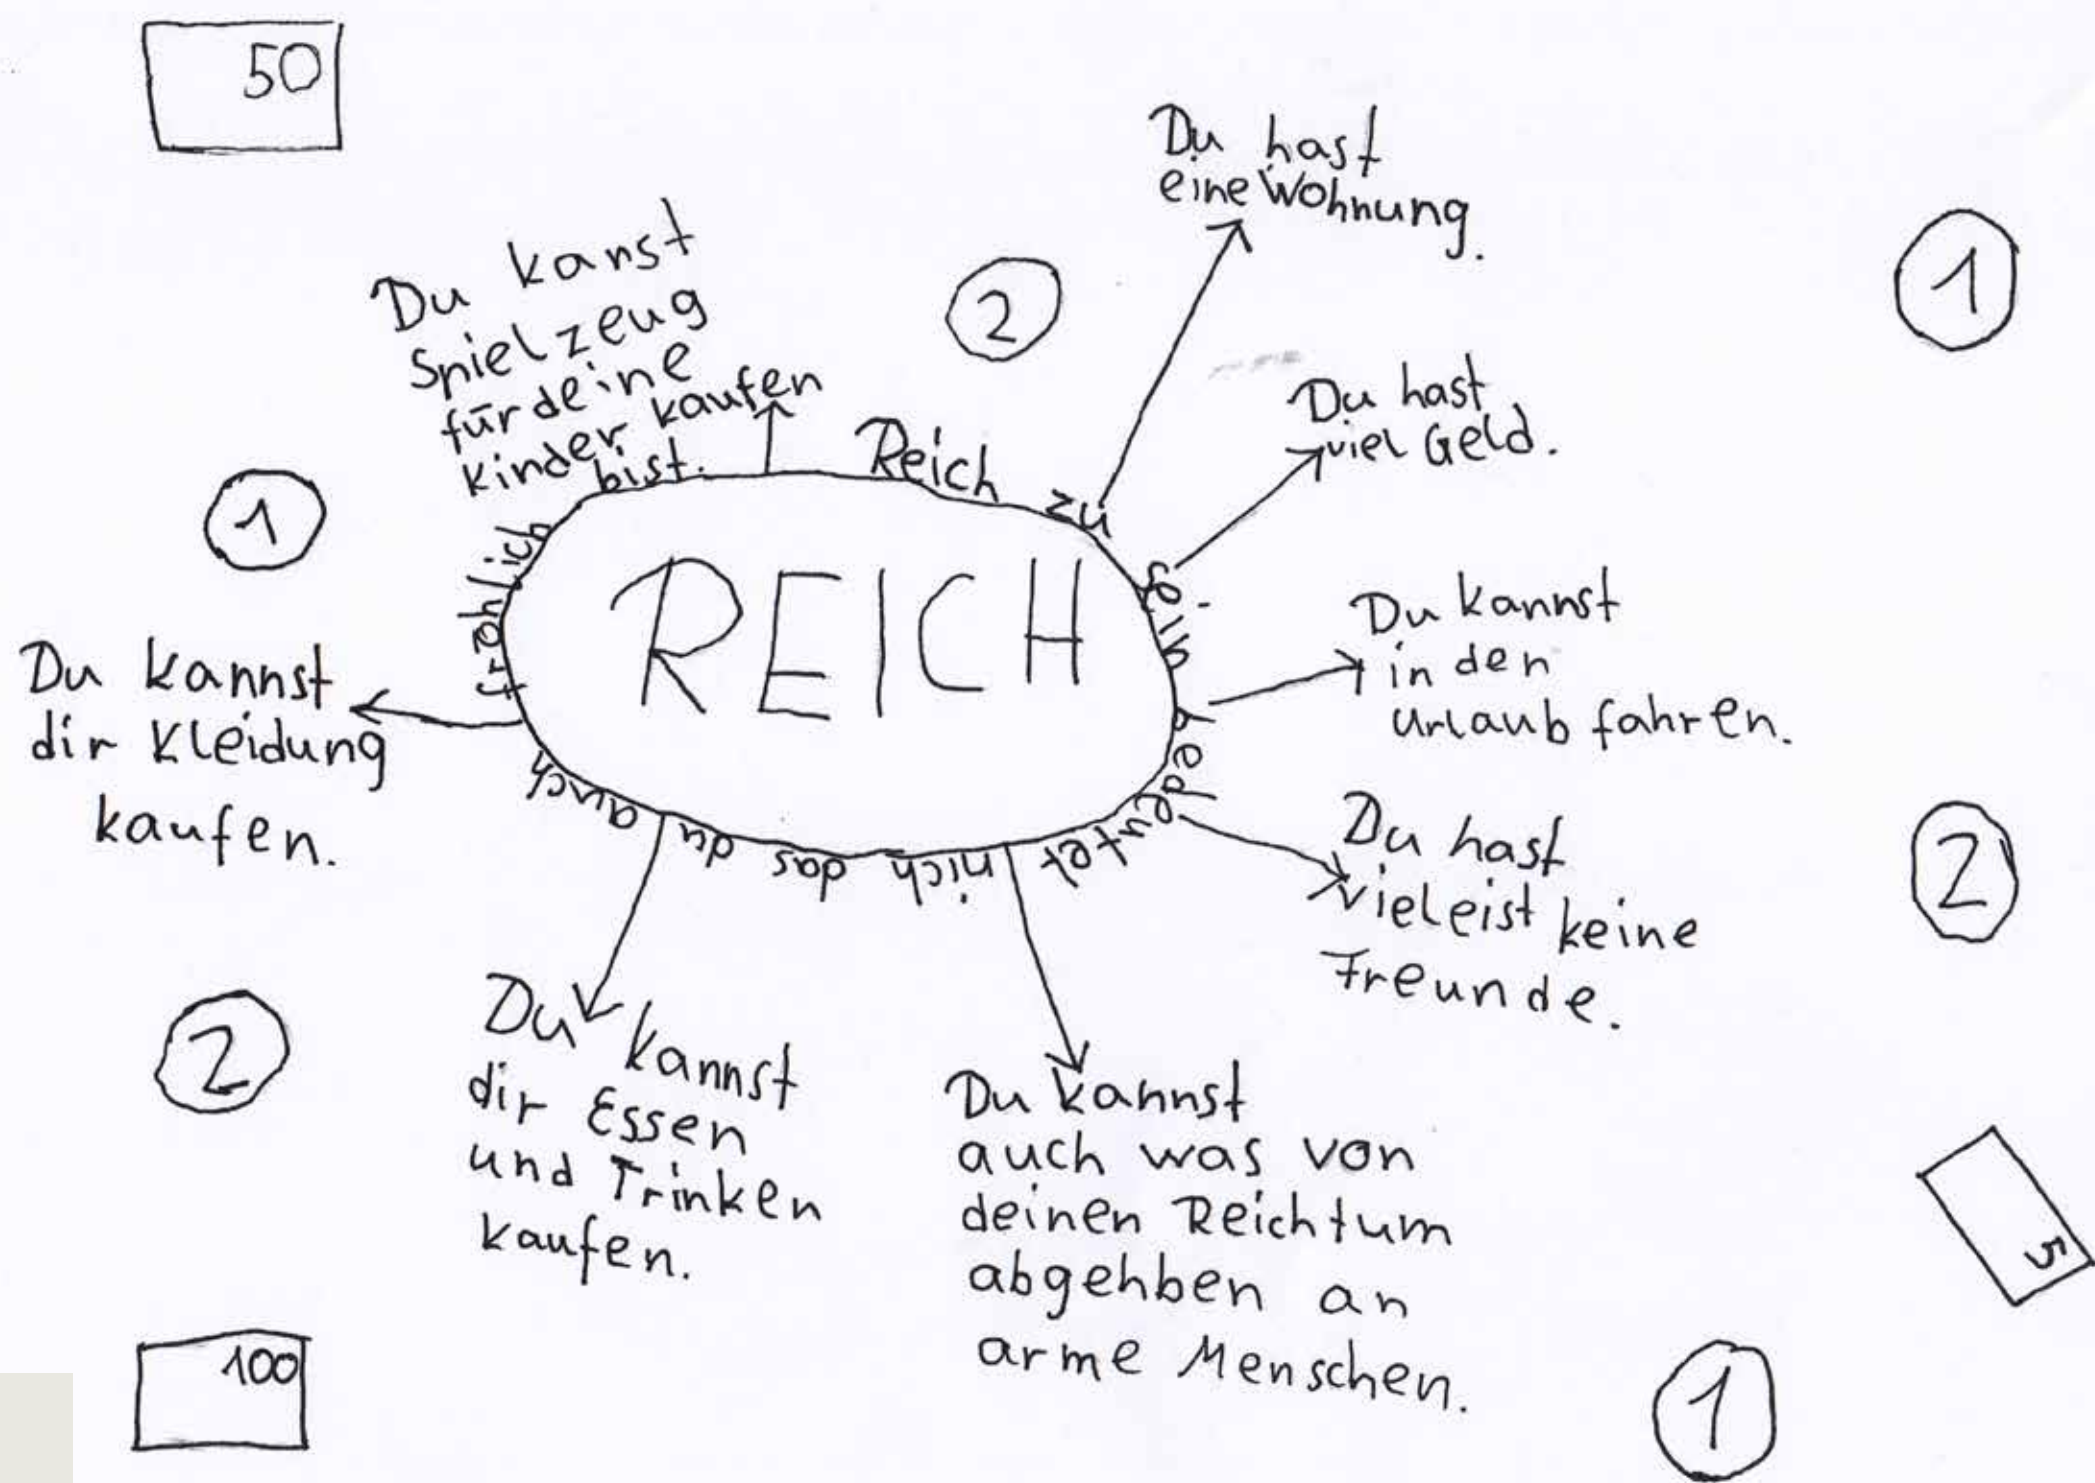 50
Du hast
eine Wohnung.
1
2
Du kanst
Spielzeug
für deine
kinder kaufen
Du hast
viel Geld.
1
Reich zu sein bedeutet nich das du auch fröhlich bist.
REICH
Du kannst
in den
urlaub fahren.
Du kannst
dir Kleidung
kaufen.
Du hast
vieleist keine
Freunde.
2
2
Du kannst
dir Essen
und Trinken
kaufen.
Du kannst
auch was von
deinen Reichtum
abgehben an
arme Menschen.
5
100
1